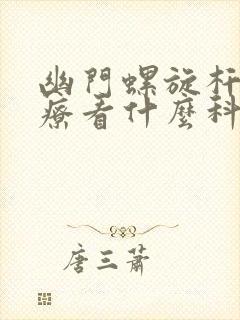 幽門螺旋杆
療看什麼科
唐三蕭